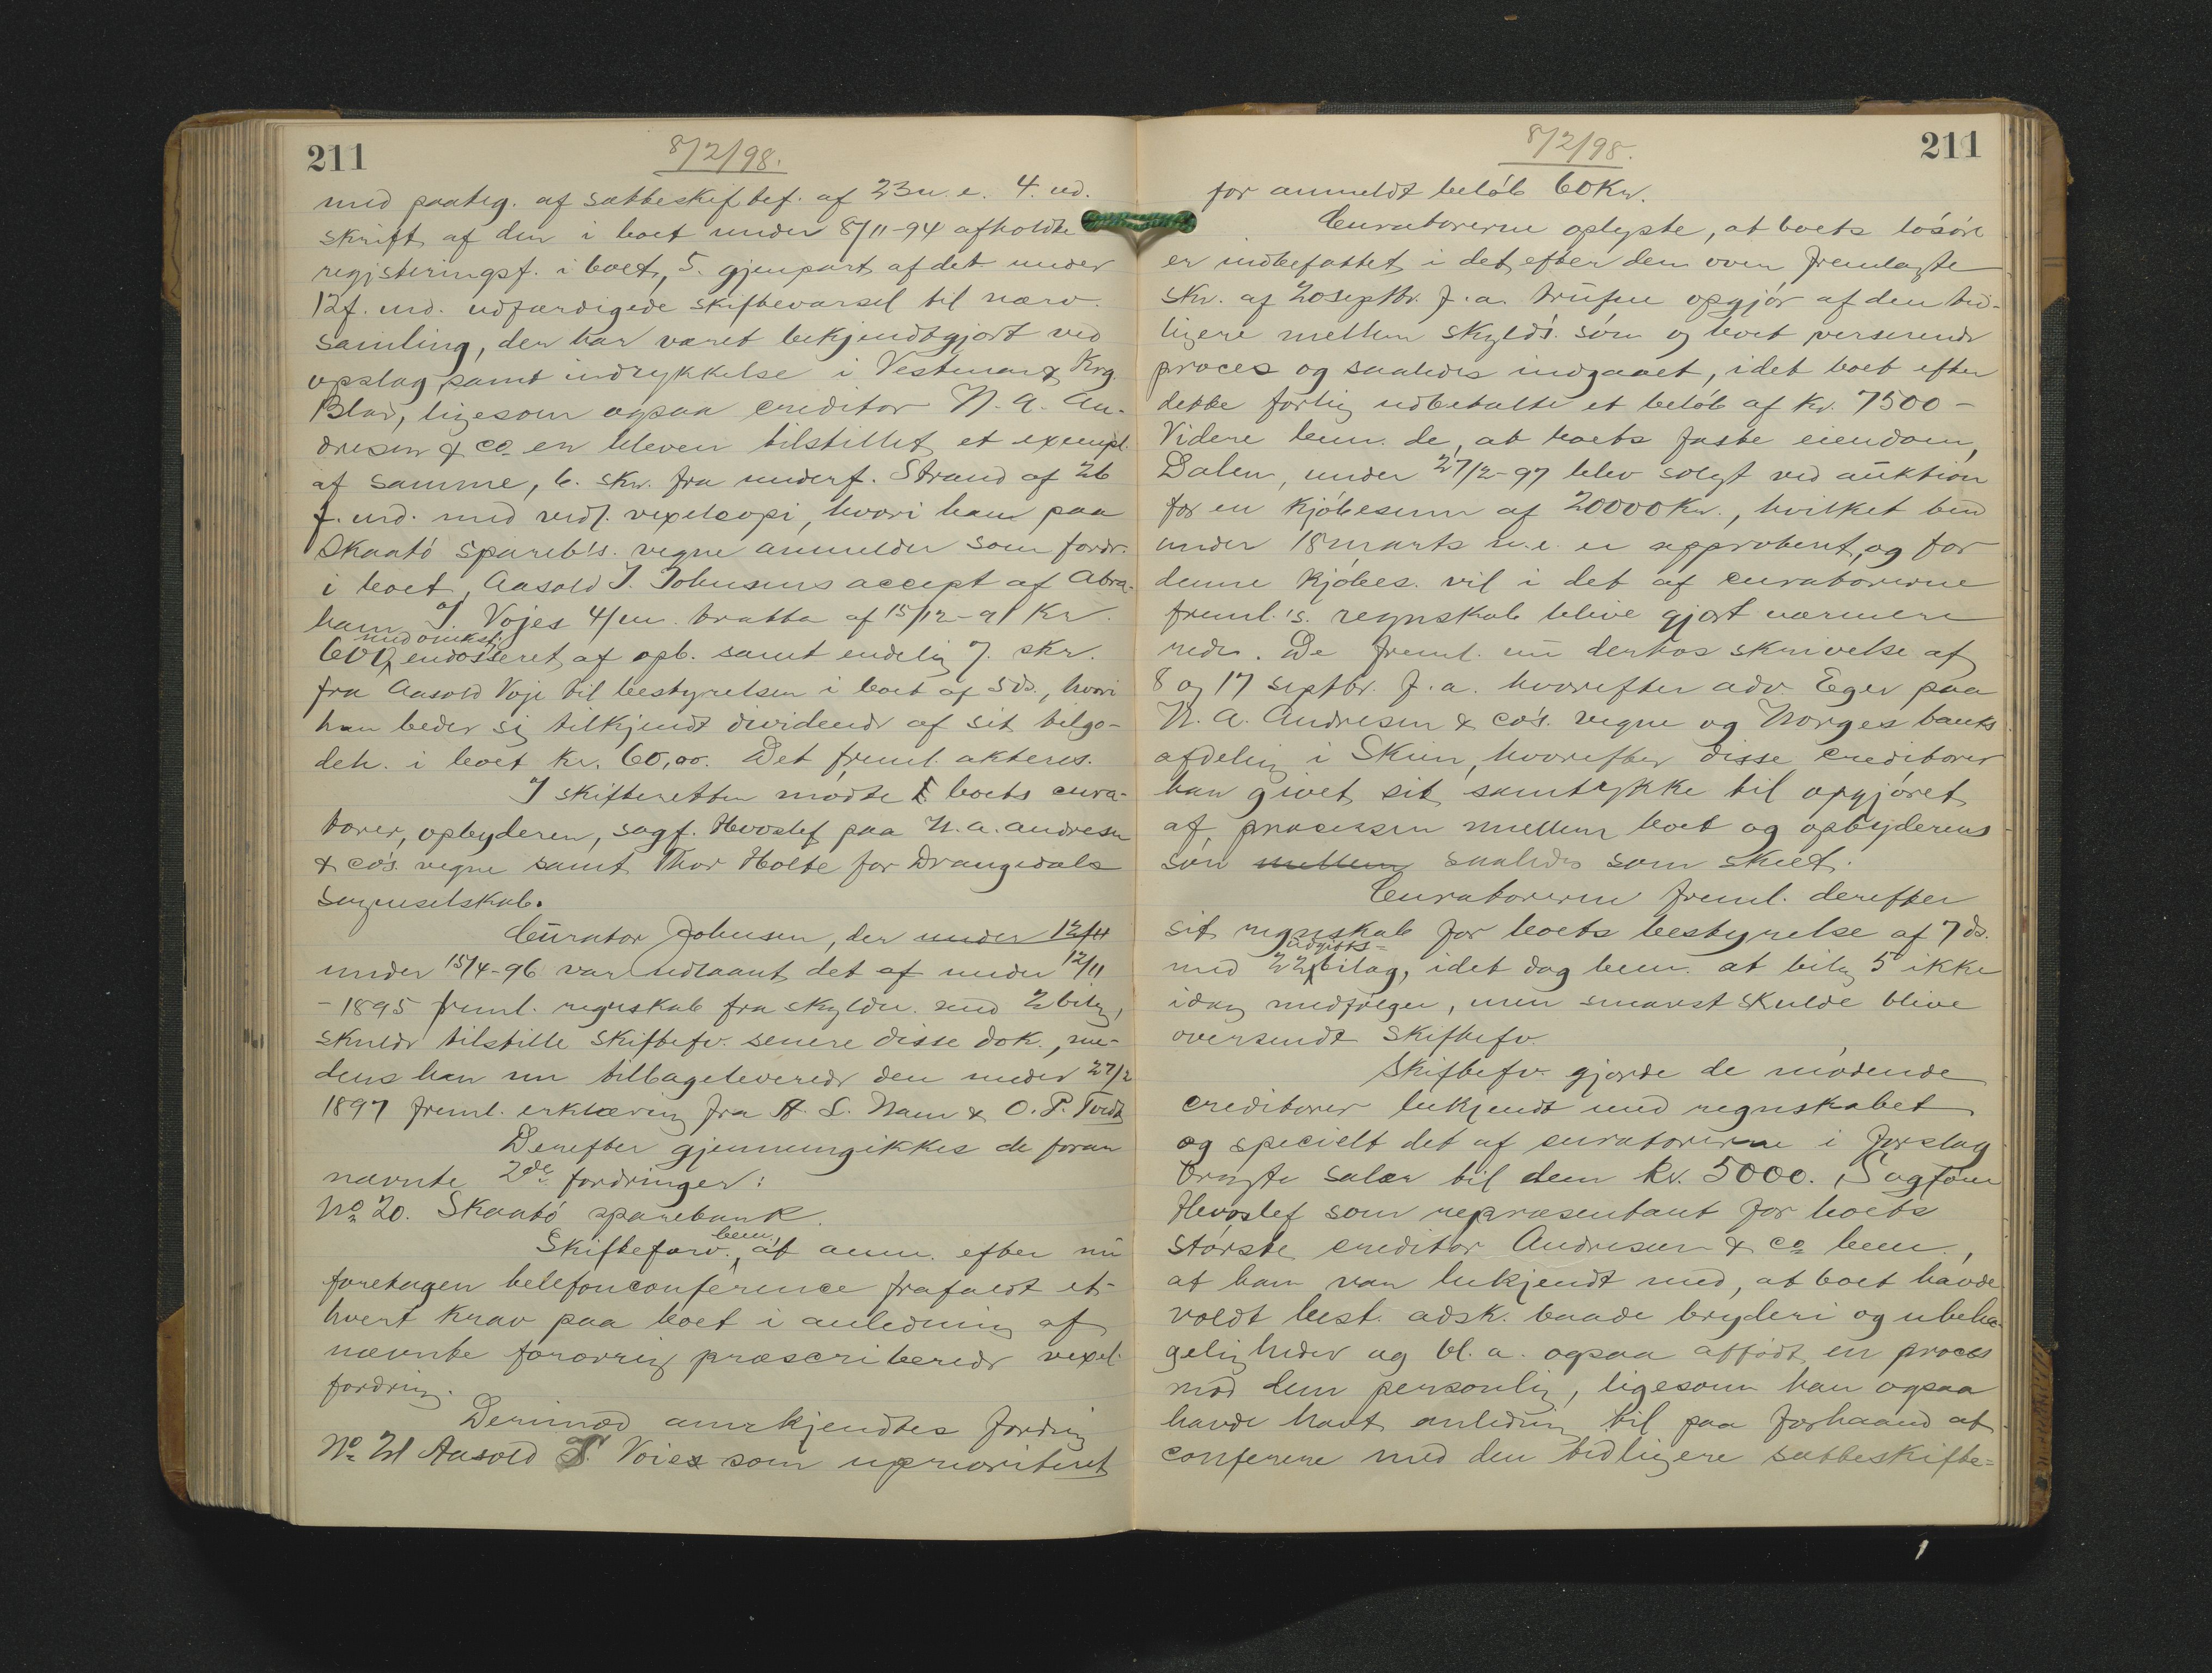 211
8/2/98.
med paateg. af sætteskiftef. af 23 m. e. 4. ud.
skrift af den i boet under 8/11-94 afholdte
registeringsf. i boet, 5. gjenpart af det under
12 f. md. udfærdigede skiftevarsel til nærv.
samling, der har været bekjendtgjort ved
opslag samt indrykkelse i Vestmar & Krg.
Blad, ligesom ogsaa creditor N. A. An-
dresen & Co er bleven tilstillet et exempl.
af samme, 6. skr. fra underf. Strand af 26
f. md. med vedl. vexelcopi, hvori han paa
Skaatö spareb's. vegne anmelder som fordr.
i boet, Aasold J. Johnsens accept af Abra-
ham J. Vojes 4/m. tratta af 15/12-91 Kr.
600 med omkst. endosseret af opb. samt endelig 7. skr.
fra Aasold Voje til bestyrelsen i boet af 5 ds., hvori
han beder sig tilkjendt dividende af sit tilgo-
deh. i boet Kr. 60,00. Det freml. akteres.
I skifteretten mödte boets cura-
torer, opbyderen, sagf. Hvoslef paa N. A. Andresen
& Co's. vegne samt Thor Holte for Drangedals
sogneselskab.
Curator Johnsen, der under 12/11
under 15/4-96 var udlaant det af under 12/11
-1895 freml. regnskab fra skyldn. med 2 bilag,
skulde tilstille skiftefv. senere disse dok., me-
dens han nu tilbageleverede den under 27/2
1897 freml. erklæring fra A. S. Nam & O. P. Tvedt
Derefter gjennemgikkes de foran
nævnte 2de fordringer:
No 20. Skaatö sparebank.
Skifteforv. bem., at anm. efter nu
foretagen telefonconference frafaldt et-
hvert krav paa boet i anledning af
nævnte forövrig præscriberede vexel-
fordring.
Derimod anerkjendtes fordring
No 21 Aasold T. Voies som uprioriteret
211
8/2/98.
for anmeldt belöb 60 Kr.
Curatorerne oplyste, at boets lösöre
er indbefattet i det efter den oven fremlagte
skr. af 20 septbr. f. a. trufne opgjör af den tid-
ligere mellem skyld's. sön og boet verserende
proces og saaledes indgaaet, idet boet efter
dette forlig udbetalte et belöb af Kr. 7500 -
Videre bem. de, at boets faste eiendom,
Dalen, under 27/2-97 blev solgt ved auktion
for en kjöbesum af 20000 Kr., hvilket bud
under 18 marts n. e. er approbert, og for
denne kjöbes. vil i det af curatorerne
freml.'s. regnskab blive gjort nærmere
rede. De freml. nu derhos skrivelse af
8 og 17 septbr. f. a. hvorefter adv. Eger paa
N. A. Andresen & Co's. vegne og Norges banks
afdeling i Skien, hvorefter disse creditorer
har givet sit samtykke til opgjöret
af processen mellem boet og opbyderens
sön mellem saaledes som skeet.
Curatorerne freml. derefter
sit regnskab for boets bestyrelse af 7 ds.
med 22 udgifts- bilag, idet dog bem. at bilag 5 ikke
idag medfölger, men snarest skulde blive
oversendt skiftefv.
Skiftefv. gjorde de mödende
creditorer bekjendt med regnskabet
og specielt det af curatorerne i forslag
bragte salær til dem Kr. 5000. Sagförer
Hvoslef som repræsentant for boets
störste creditor Andresen & Co bem.,
at han var bekjendt med, at boet havde
voldt best. adsk. baade bryderi og ubeha-
geligheder og bl. a. ogsaa affödt en proces
mod dem personlig, ligesom han ogsaa
havde havt anledning til paa forhaand at
conferere med den tidligere sætteskifte=